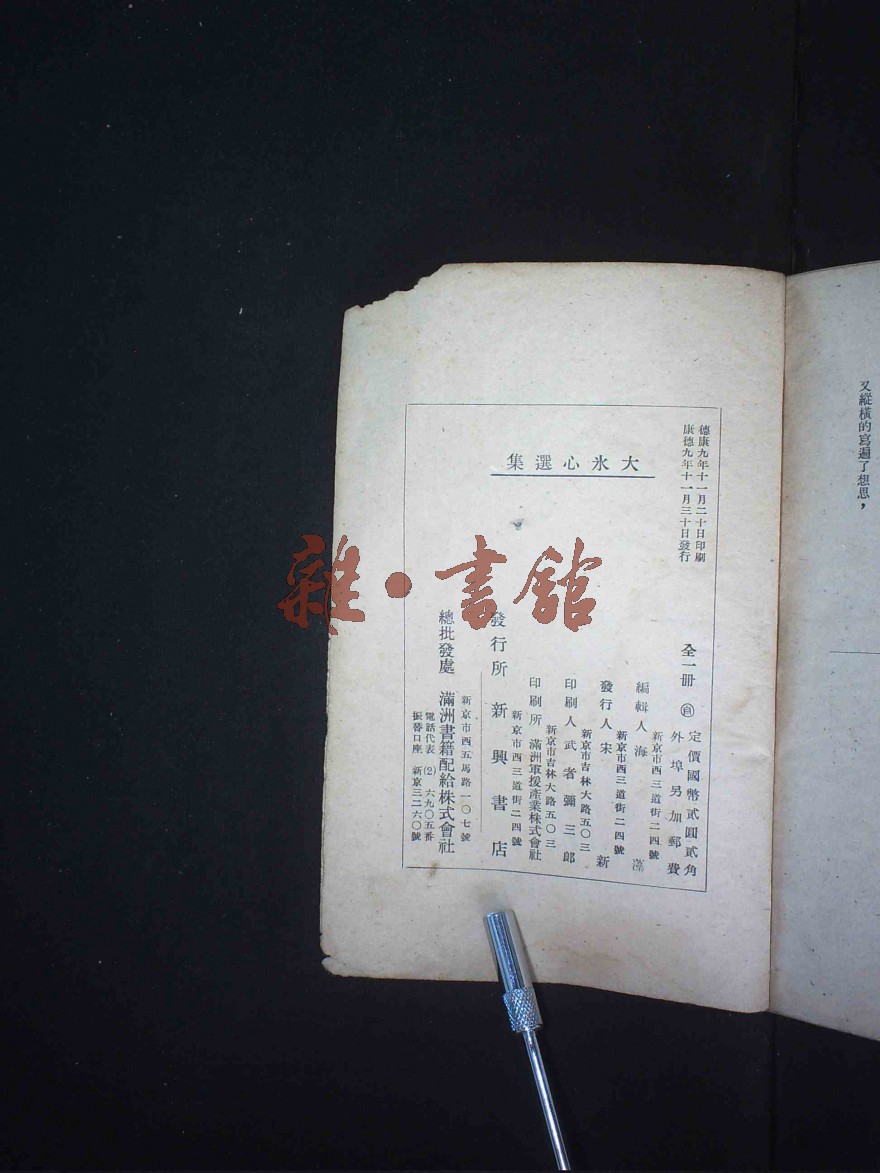 又縱橫的寫遍了想思，
德康九年十一月二十日印刷
康德九年十一月三十日發行
大氷心選集
全一冊
定價國幣貳圓貳角
外埠另加郵費
新京市西三道街二四號
編輯人 海 萍
新京市西三道街二四號
發行人 宋 新
新京市吉林大路五〇三
印刷人 武者彌三郎
新京市吉林大路五〇三
印刷所 滿洲軍援產業株式會社
新京市西三道街二四號
發行所 新興書店
新京市西五馬路一〇七號
總批發處 滿洲書籍配給株式會社
電話代表 (2) 六九〇五番
振替口座 新京三二六〇號
雜·書館